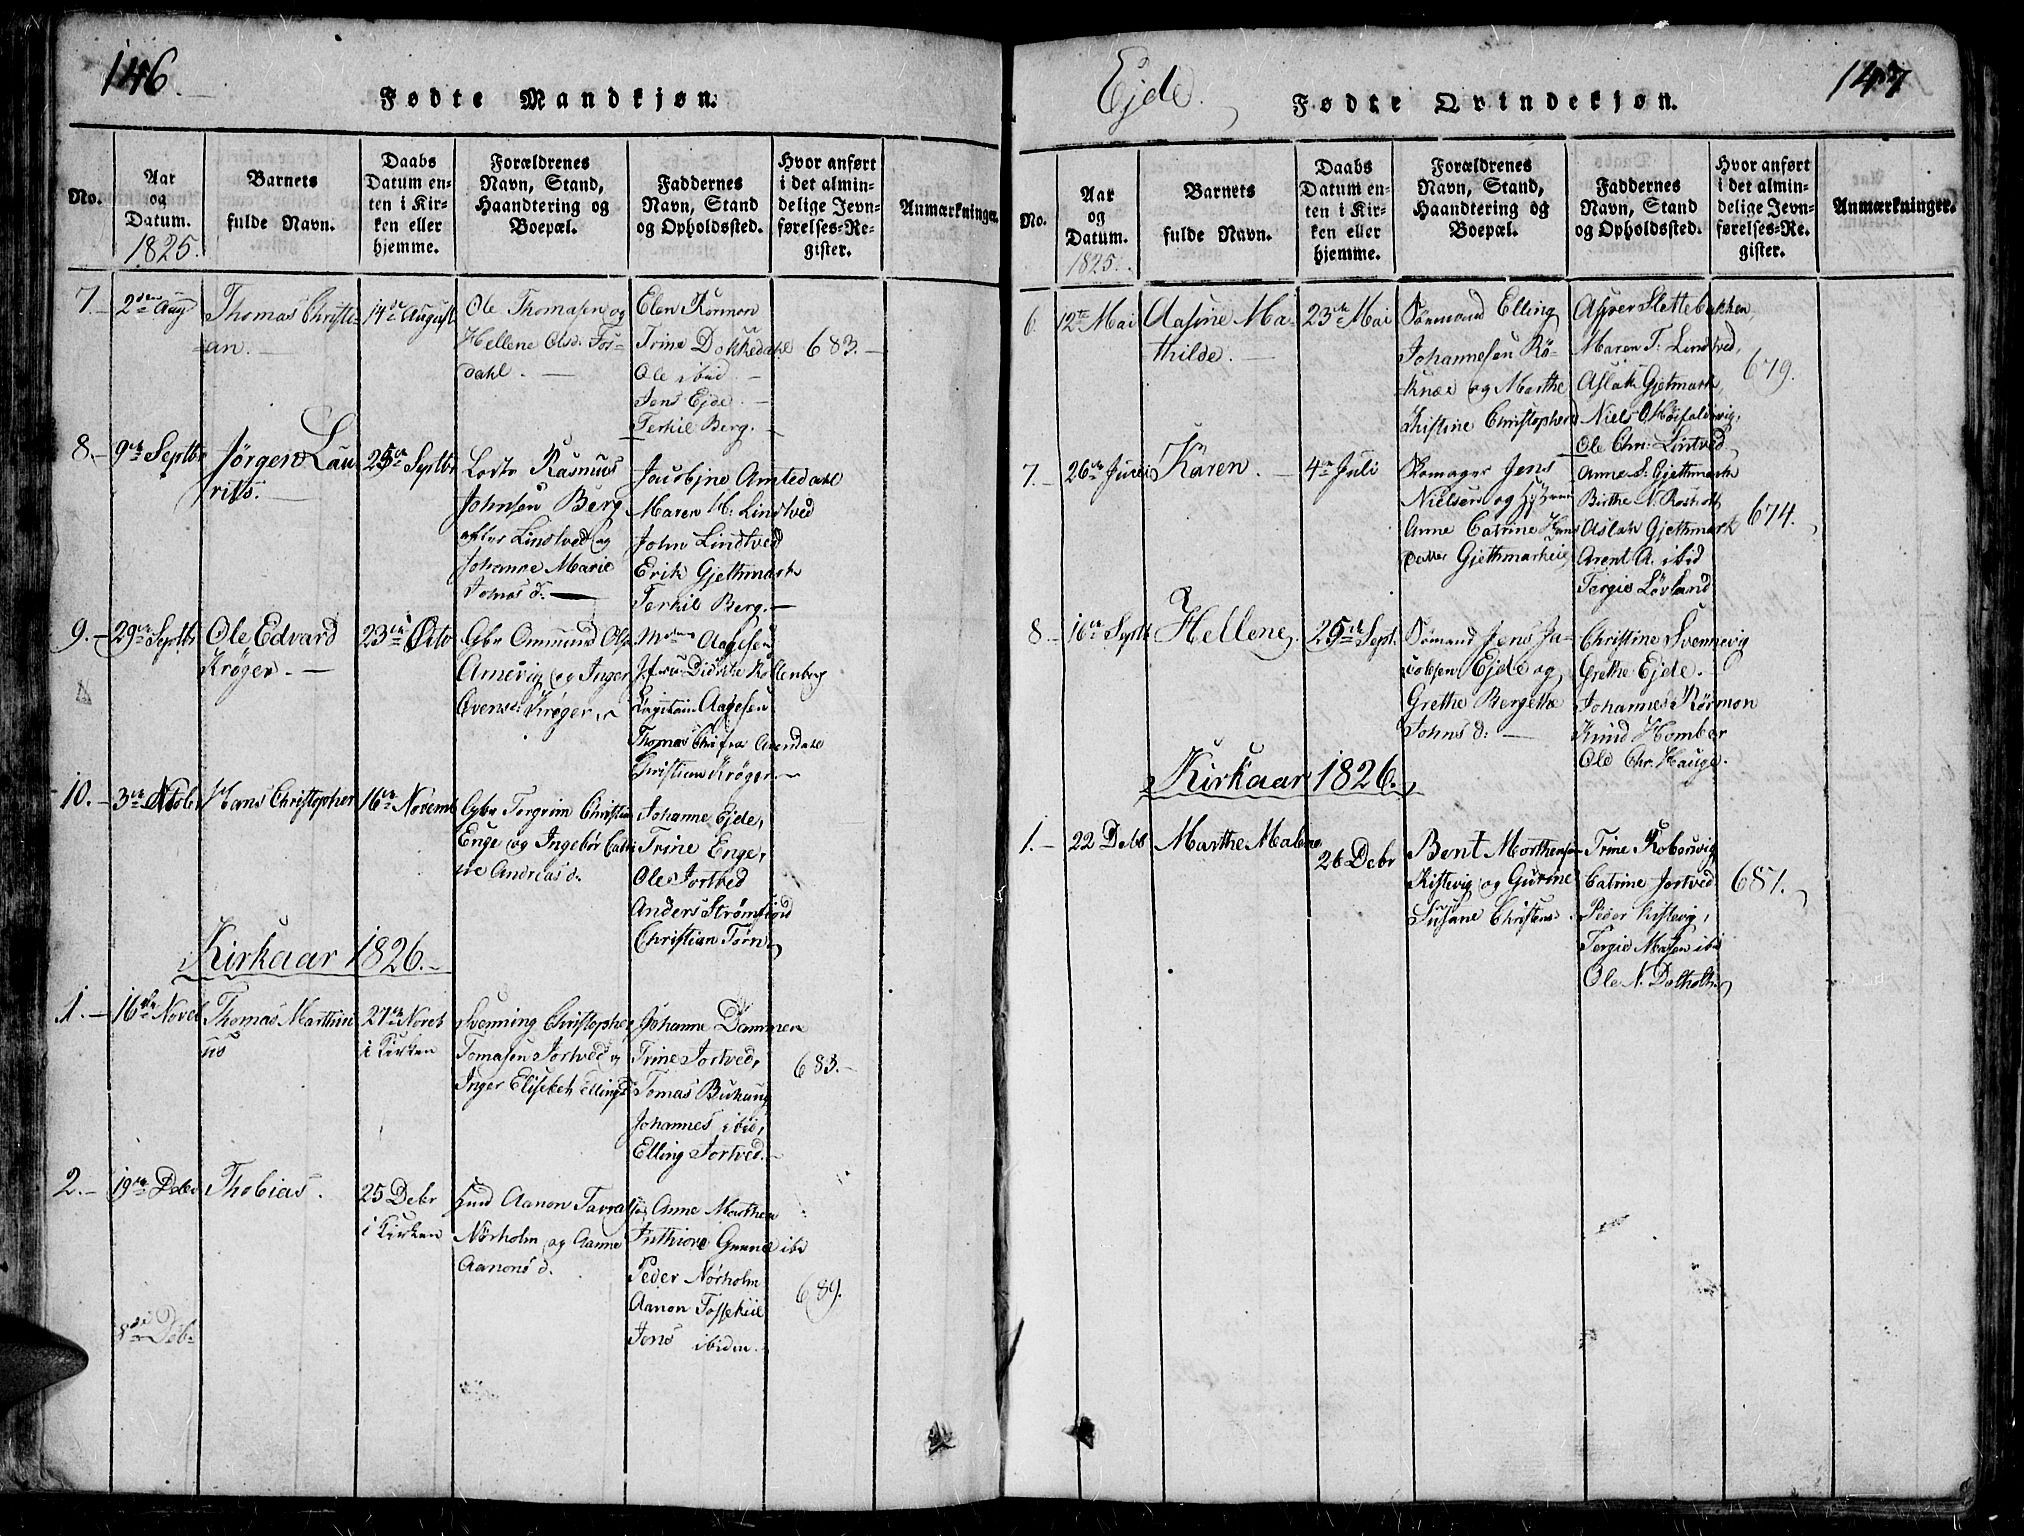 146.
Fødte Mandkjøn.
No.
Aar
og
Datum.
1825.
Barnets
fulde Navn.
Daabs
Datum en-
ten i Kir-
ken eller
hjemme.
Forældrenes
Navn, Stand,
Haandtering og
Boepæl.
Faddernes
Navn, Stand
og Opholdssted.
Hvor anført
i det almin-
delige Jevn-
førelses-Re-
gister.
Anmærkninger.
7.
2den Aug
Thomas Christi-
an.
14de August
Ole Thomasen og
Hellene Olsd. Fos-
dahl.
Elen Rørmon
Trine Dokkedahl
Ole ibid
Jens Ejde.
Terkil Berg.
683.
8.
9de Septbr
Jørgen Lau
rits.
25de Septbr
Lods Rasmus
Johnsen Berg
Lindtved og
Johanne Marie
Tomas d.
Jacobine Amtedahl
Maren M: Lindtved
John Lindtved
Erik Gjethmark
Terkil Berg.
9.
29de Septbr
Ole Edvard
Krøger.
23de Octo
Gbr Ommund Ols
Amevig og Inger
Evensd: Krøger
Aagesen
Jfru Didrike Kallenberg
Aagesen
Thomas Chr fra Arendahl
Christian Krøger
10.
3de Octobr
Hans Christopher
16de Novemb
Gbr Torgrim Christian
Enge og Ingebor Catri
ne Andreas d.
Johanne Ejde,
Trine Enge,
Ole Jortved
Anders Strømsøid
Christian Tørn
Kirkaar 1826.
1.
16de Novel
Thomas Marthin
us
27de Novel
i Kirken
Svenning Christopher
Tomasen Jortved og
Inger Elisebeth Ellings
Johanne Dammen
Trine Jortved,
Tomas Birkaug
Johannes ibid,
Elling Jortved.
683.
2.
19de Debr
Thobias.
25 Debr
i Kirken
Aanon Tavral
Nørholm og Aanne
Aanons d.
Anne Marthea
Gunnel ibi
Peder Nørholm
Aanon Tossekiil
Jens ibidem.
689.
8de Deb
Ejde.
147
Fødte Qvindekjøn.
No.
Aar
og
Datum.
1825.
Barnets
fulde Navn.
Daabs
Datum en-
ten i Kir-
ken eller
hjemme.
Forældrenes
Navn, Stand,
Haandtering og
Boepæl.
Faddernes
Navn, Stand
og Opholdssted.
Hvor anført
i det almin-
delige Jevn-
førelses-Re-
gister.
Anmærkninger.
6.
12te Mai
Aasine Ma-
thilde.
23de Mai
Sømand Elling
Johannesen Rø-
knæs og Marthe
Kistine Christophers
Asper Slettebakken,
Maren T: Lindtved,
Aslak Gjetmark,
Niels Høifaldsvig,
Ole Chr: Lintved
679.
7.
26de Junii
Karen.
4de Juli
Skomager Jens
Nielsen og
Anne Catrine Han
datter Gjethmarkeie
Anne S. Gjethmark
Birthe N. Rosholt,
Aslak Gjethmark
Arent A. ibid
Tergie Løvland
674.
8
16de Septb
Hellene
25de Sept.
Sømand Jens Ja-
cobsen Ejde og
Grethe Bergethe
Johns d.
Christine Svennevig
Grethe Ejde.
Johannes Rørmon
Knud Hombor
Ole Chr. Hauge.
Kirkaar 1826.
1.
22 Debr
Marthe Malene
26 Debr
Bent Morthensen
Kistevig og Gurine
Susane Christens
Trine Kobervig
Catrine Jortved
Peder Kistevig,
Tergie Masen ibi
Ole N. Dalholt
681.